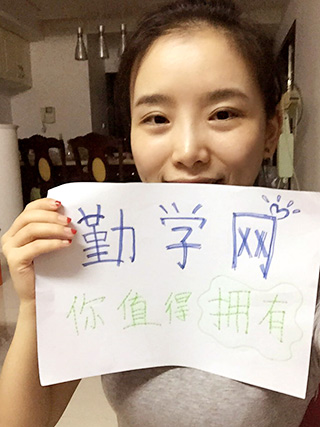 勤学网
你值得拥有